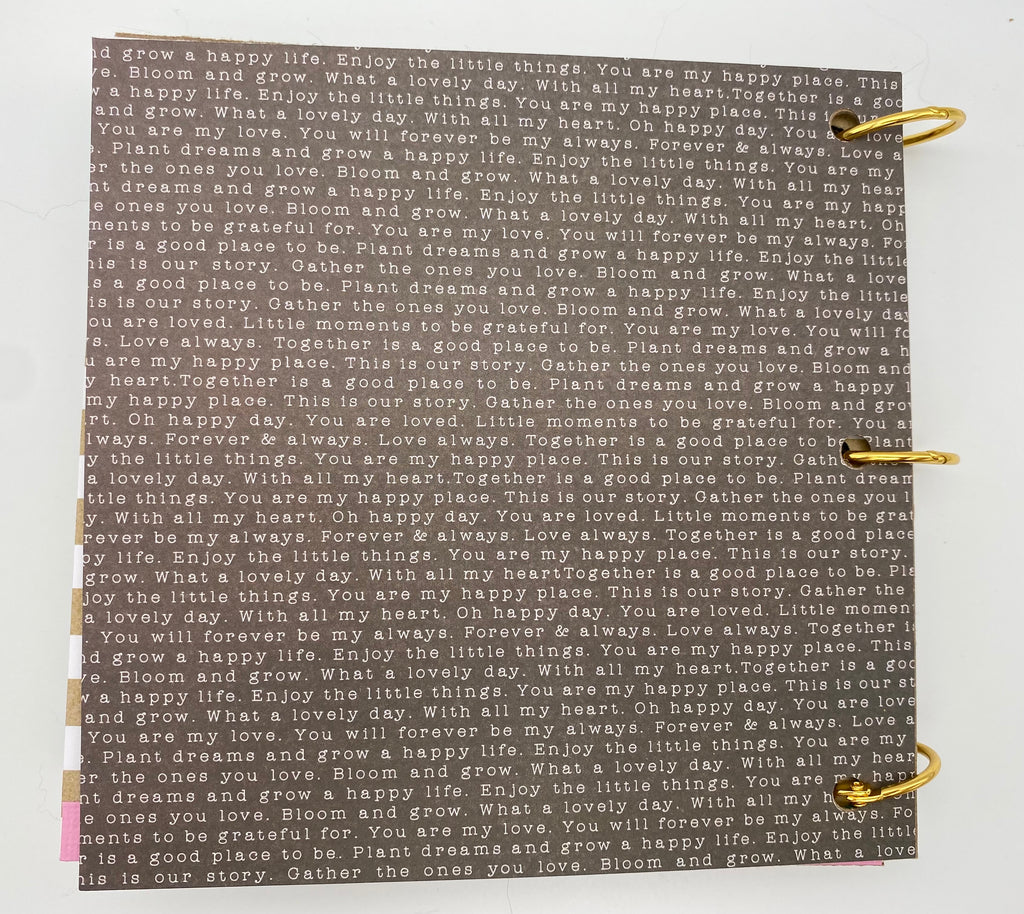 nd grow a happy life. Enjoy the little things. You are my happy place. This
ve. Bloom and grow. What a lovely day. With all my heart.Together is a goo
w a happy life. Enjoy the little things. You are my happy place. This is our
and grow. What a lovely day. With all my heart. Oh happy day. You a love
You are my love. You will forever be my always. Forever & always. Love a
. Plant dreams and grow a happy life. Enjoy the little things. You are my
er the ones you love. Bloom and grow. What a lovely day. With all my hear
nt dreams and grow a happy life. Enjoy the little things. You are my happ
e ones you love. Bloom and grow. What a lovely day. With all my heart. Oh
ments to be grateful for. You are my love. You will forever be my always. Fo
r is a good place to be. Plant dreams and grow a happy life. Enjoy the little
his is our story. Gather the ones you love. Bloom and grow. What a love
s a good place to be. Plant dreams and grow a happy life. Enjoy the little
is is our story. Gather the ones you love. Bloom and grow. What a lovely day
ou are loved. Little moments to be grateful for. You are my love. You will fo
s. Love always. Together is a good place to be. Plant dreams and grow a h
u are my happy place. This is our story. Gather the ones you love. Bloom and
y heart.Together is a good place to be. Plant dreams and grow a happy l
my happy place. This is our story. Gather the ones you love. Bloom and grow
rt. Oh happy day. You are loved. Little moments to be grateful for. You ar
lways. Forever & always. Love always. Together is a good place to be. Plant
y the little things. You are my happy place. This is our story. Gath the
a lovely day. With all my heart.Together is a good place to be. Plant dream
ttle things. You are my happy place. This is our story. Gather the ones you l
y. With all my heart. Oh happy day. You are loved. Little moments to be grat
rever be my always. Forever & always. Love always. Together is a good place
py life. Enjoy the little things. You are my happy place. This is our story.
grow. What a lovely day. With all my heartTogether is a good place to be. Pla
joy the little things. You are my happy place. This is our story. Gather the
a lovely day. With all my heart. Oh happy day. You are loved. Little momen
. You will forever be my always. Forever & always. Love always. Together is
nd grow a happy life. Enjoy the little things. You are my happy place. This
ve. Bloom and grow. What a lovely day. With all my heart.Together is a goo
w a happy life. Enjoy the little things. You are my happy place. This is our st
and grow. What a lovely day. With all my heart. Oh happy day. You are love
You are my love. You will forever be my always. Forever & always. Love a
. Plant dreams and grow a happy life. Enjoy the little things. You are my
er the ones you love. Bloom and grow. What a lovely day. With all my hear
nt dreams and grow a happy life. Enjoy the little things. You are my happ
e ones you love. Bloom and grow. What a lovely day. With all my h Oh
ments to be grateful for. You are my love. You will forever be my always. Fo
r is a good place to be. Plant dreams and grow a happy life. Enjoy the little
his is our story. Gather the ones you love. Bloom and grow. What a love